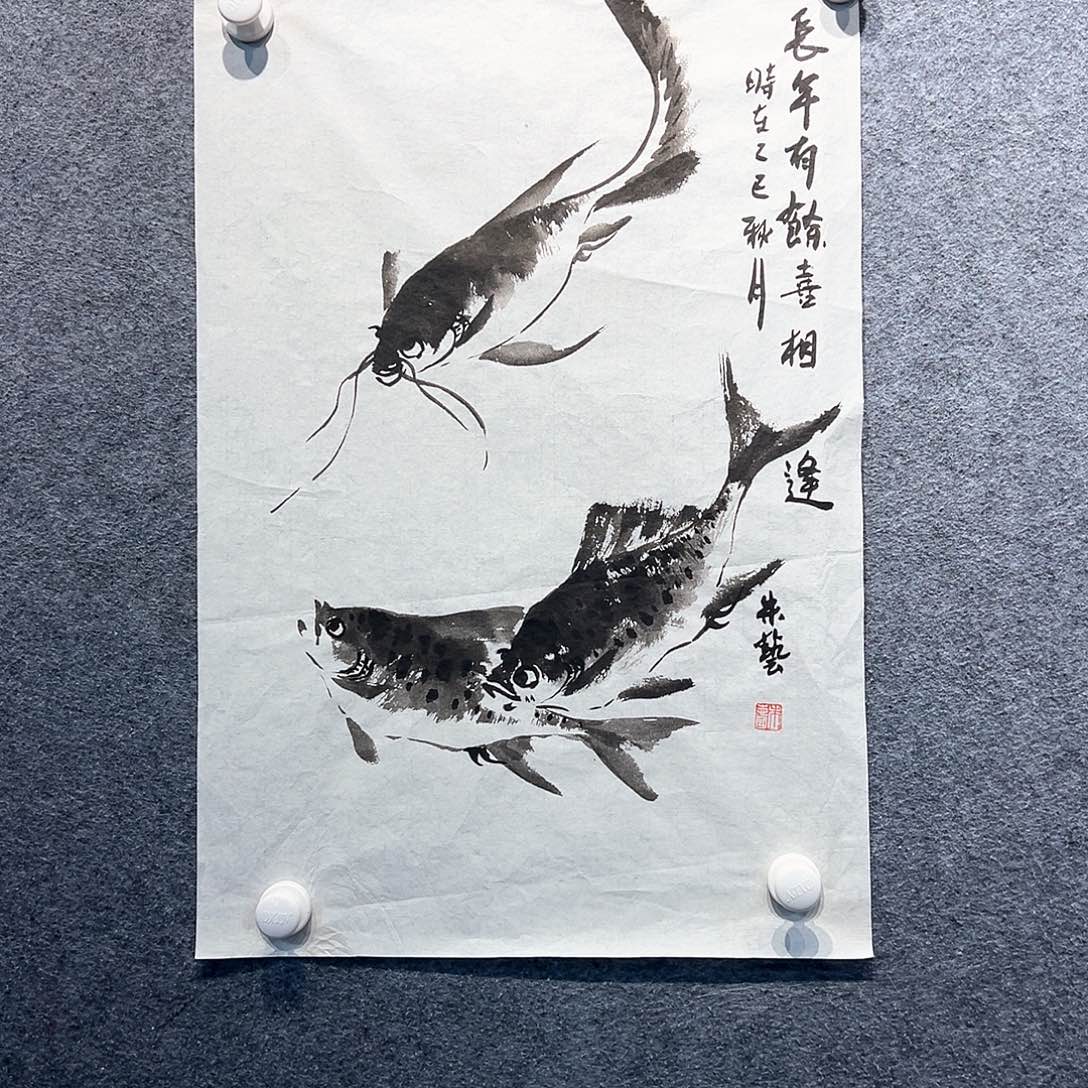 長年有餘喜相逢
時在乙巳秋月
朱藝